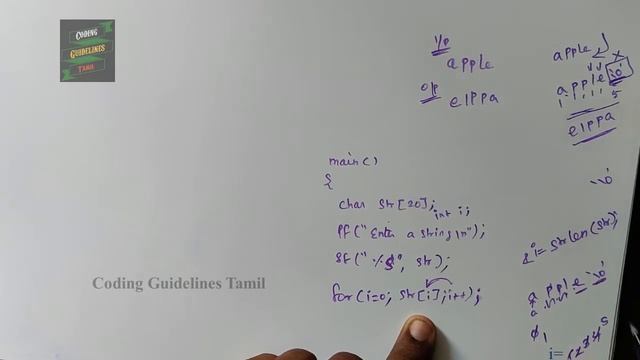 CODING
GUIDELINES
TAMIL
I/p
apple
o/p
elppa
apple
apple \0
elppa
main()
{
char str[20]; int i;
Pf("Enter a string \n");
Sf("%s", str);
for(i=0; str[i]; i++);
\0
i = strlen(str);
apple \0
Coding Guidelines Tamil